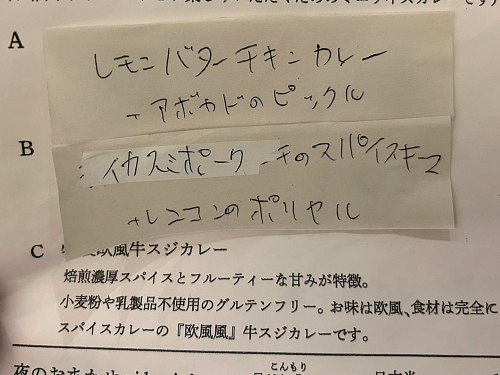 A
レモンバターチキンカレー
+アボカドのピックル
B
イカスミポーク
のスパイスキーマ
+レンコンのポリヤル
C 欧風牛スジカレー
焙煎濃厚スパイスとフルーティーな甘みが特徴。
小麦粉や乳製品不使用のグルテンフリー。お味は欧風、食材は完全に
スパイスカレーの『欧風風』牛スジカレーです。
こんもり